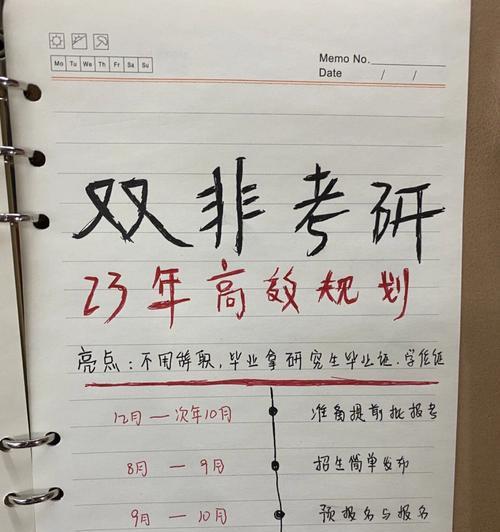 Mo Tu We Th Fr Sa Su
Memo No.
Date / /
双非考研
23年高效规划
亮点：不用辞职，毕业拿研究生毕业证、学位证
12月 — 次年10月 准备提前批报考
8月 — 9月 招生简章发布
9月 — 10月 预报名与报名